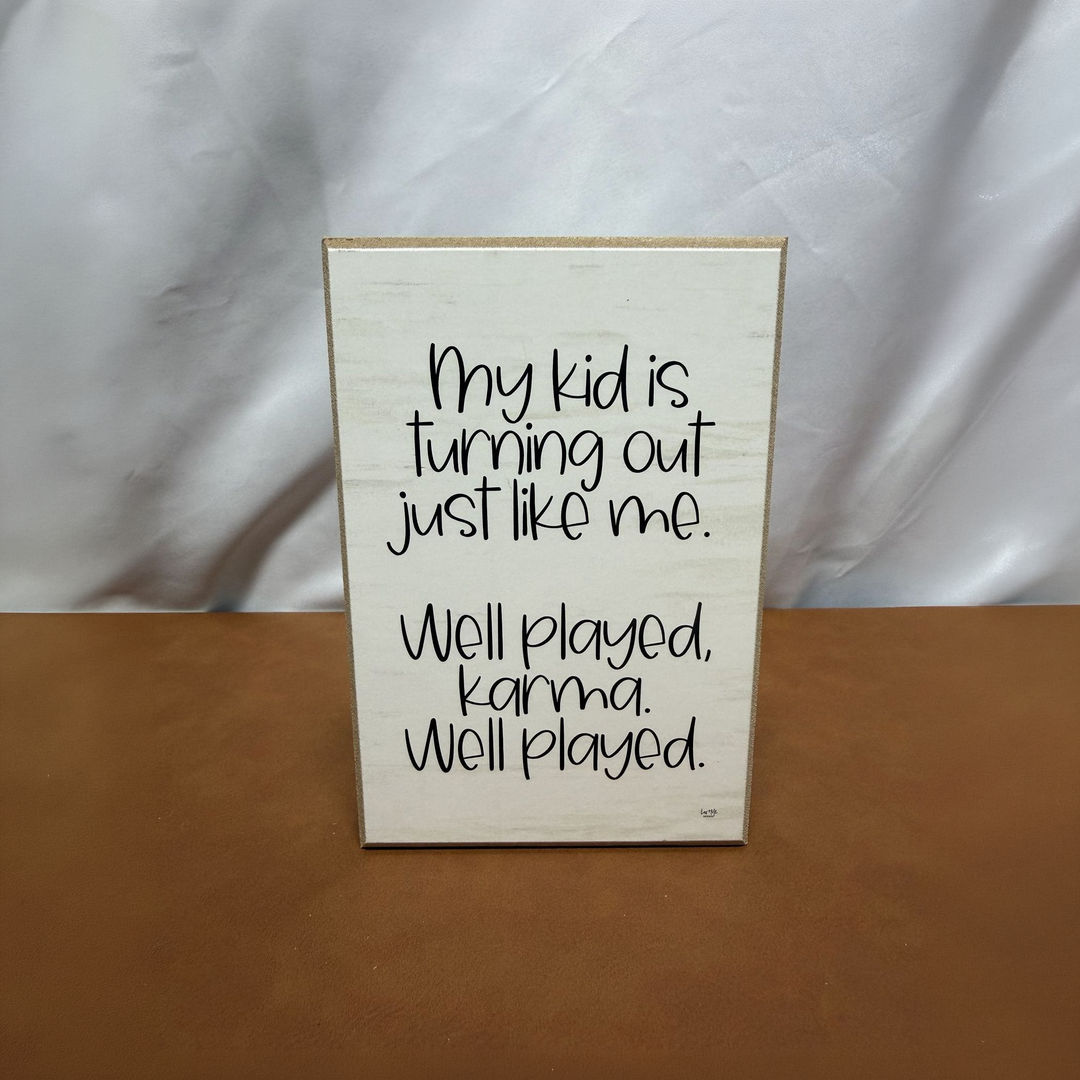 My kid is
turning out
just like me.
Well played,
karma.
Well played.